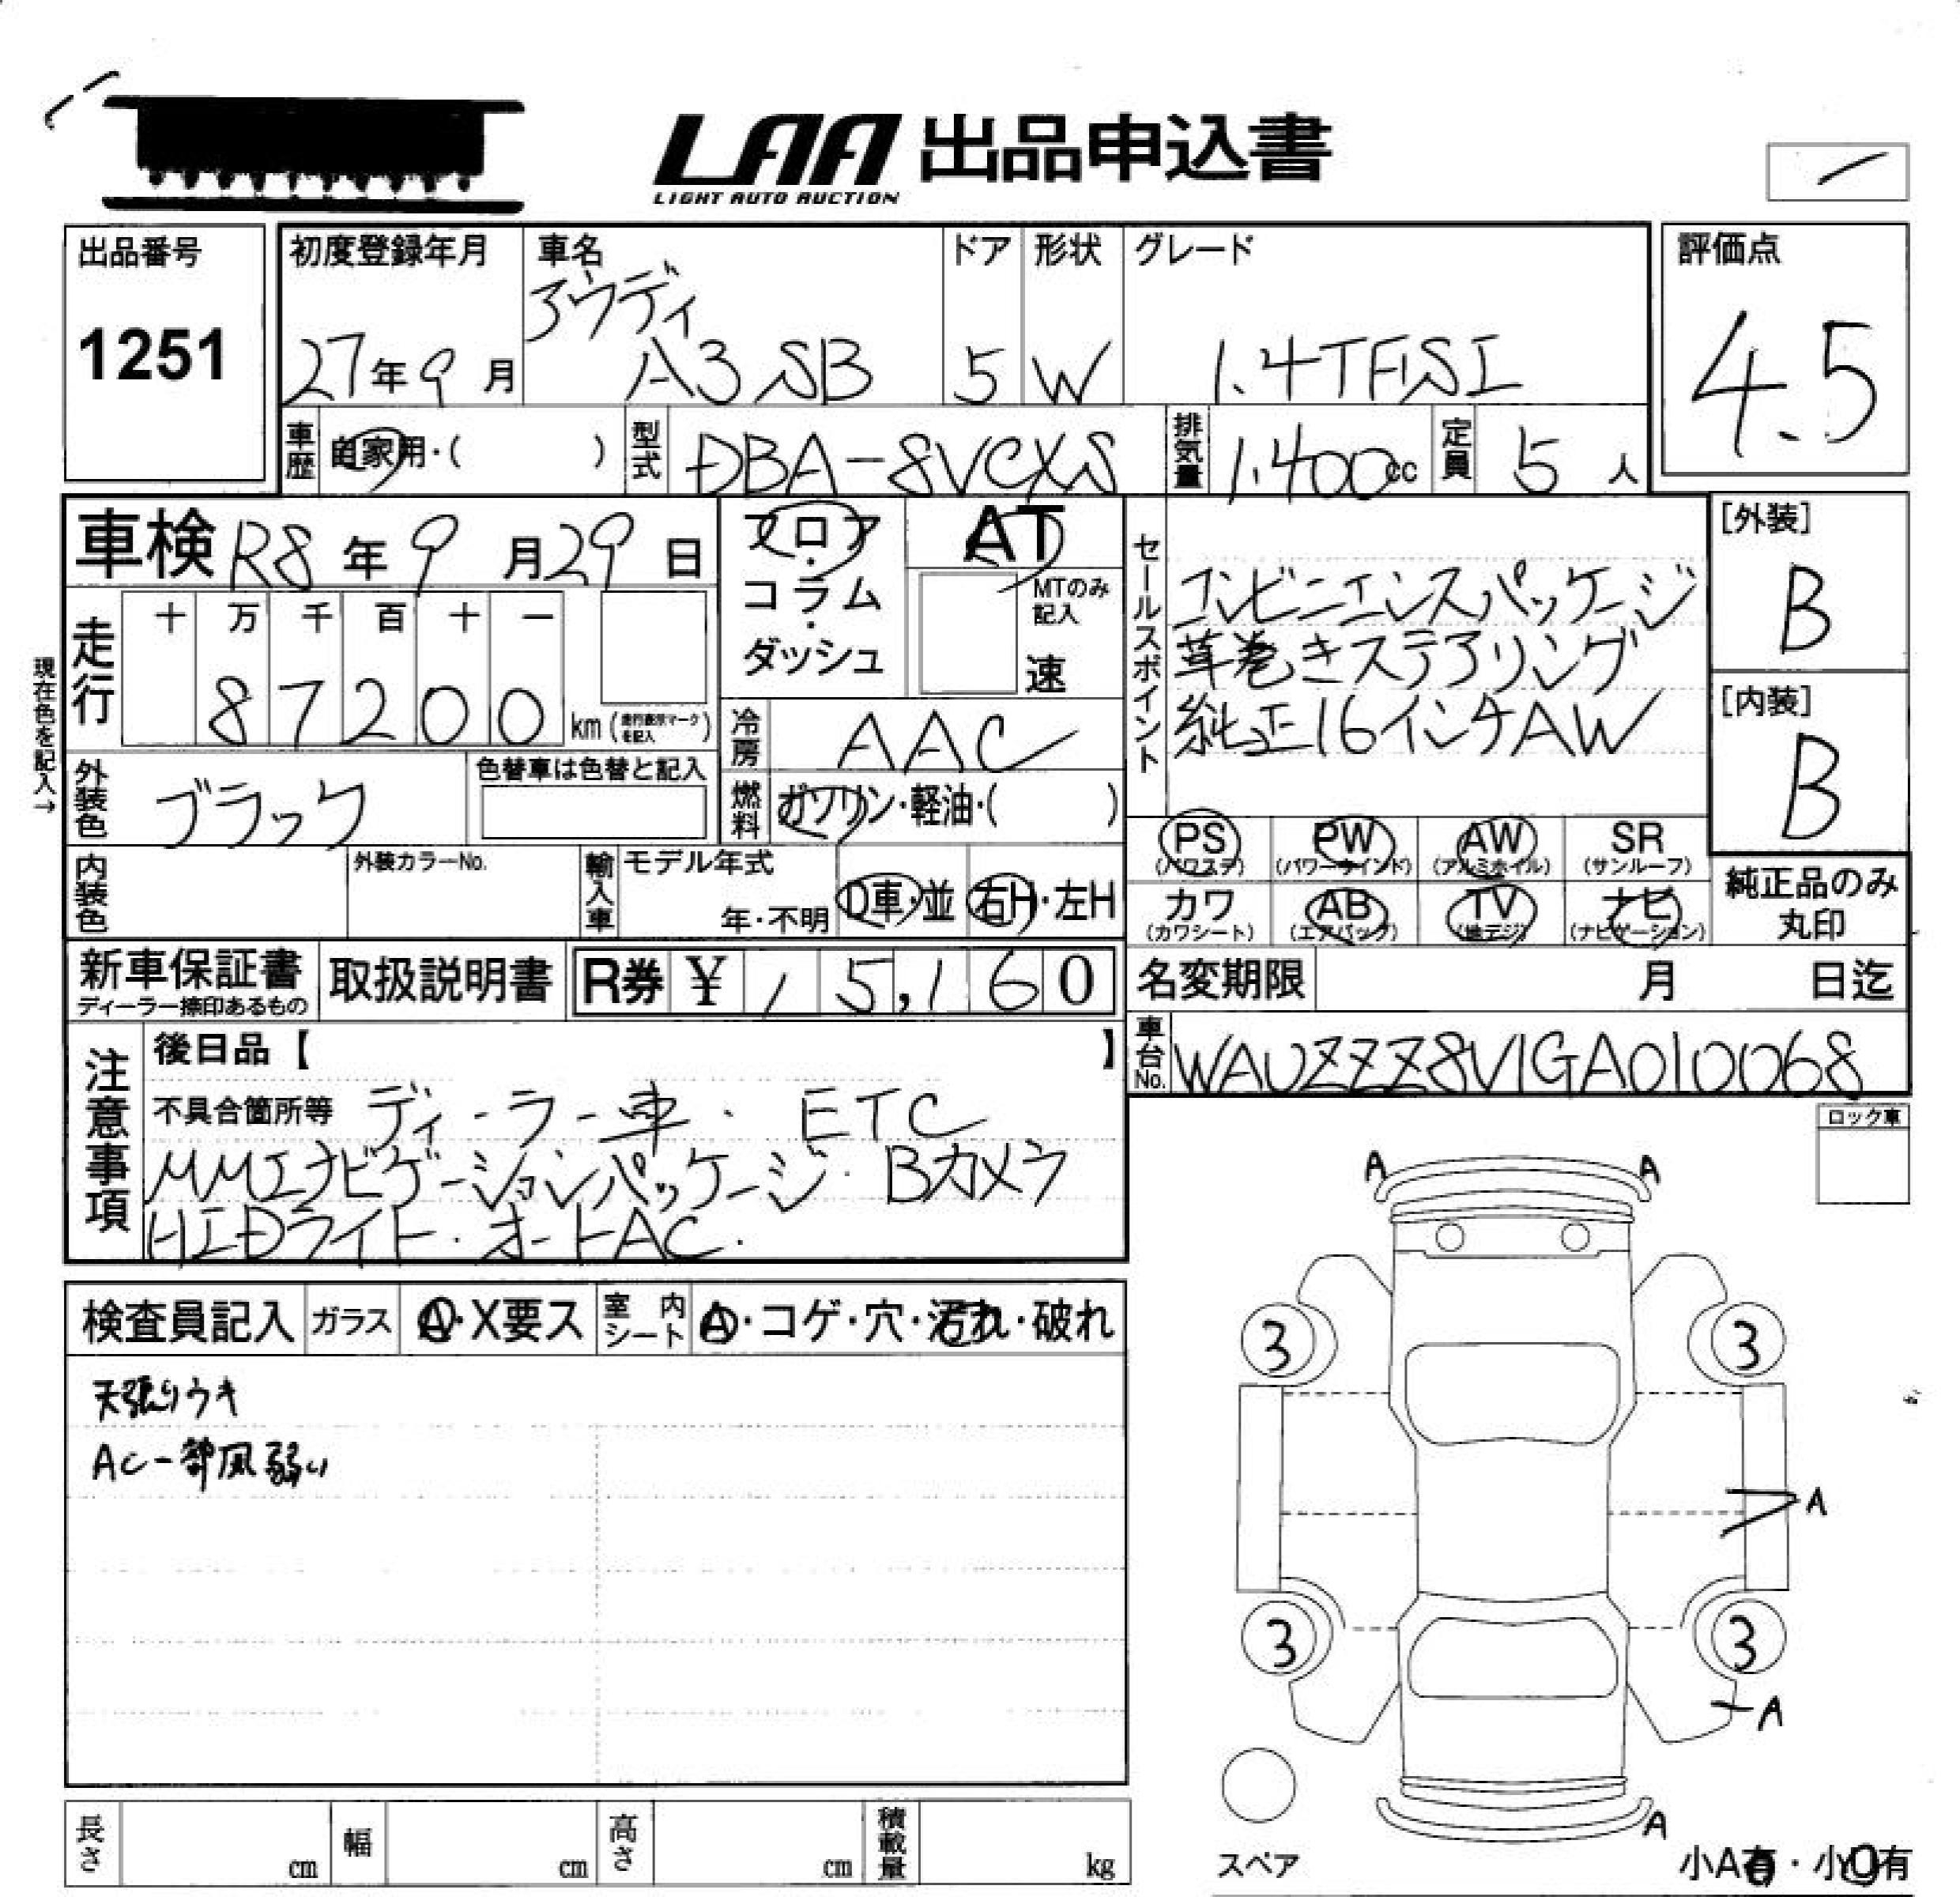 LAA 出品申込書
LIGHT AUTO AUCTION
出品番号
1251
初度登録年月
27年9月
車名
アウディ
A3 SB
ドア
5
形状
W
グレード
1.4TFSI
評価点
4.5
車歴
自家用・( )
型式
DBA-8VCXS
排気量
1.400cc
定員
5人
車検 R8年9月29日
走行
十 万 千 百 十 一
87200
km (走行表示マークを記入)
現在色を記入→
外装色
ブラック
色替車は色替と記入
内装色
外装カラーNo.
輸入車
モデル年式
年・不明
D車・並
右H・左H
フロア・コラム・ダッシュ
AT
MTのみ記入
速
冷房
AAC
燃料
ガソリン・軽油・( )
セールスポイント
コンビニエンスパッケージ
革巻きステアリング
純正16インチAW
[外装]
B
[内装]
B
PS (パワステ)
PW (パワーウインド)
AW (アルミホイル)
SR (サンルーフ)
カワ (カワシート)
AB (エアバック)
TV (地デジ)
ナビ (ナビゲーション)
純正品のみ丸印
新車保証書
ディーラー捺印あるもの
取扱説明書
R券 ¥ 15,160
名変期限 月 日迄
車台No.
WAUZZZ8V1GA010068
注意事項
後日品【 】
不具合箇所等 ディーラー車・ETC
MMIナビゲーションパッケージ・Bカメラ
HIDライト・オートAC.
検査員記入
ガラス
A・X要ス
室内シート
A・コゲ・穴・汚れ・破れ
天張りウキ
AC一部風弱い
ロック車
A A
3 3
A
3 3
A
A
スペア
小A有・小U有
長さ cm
幅 cm
高さ cm
積載量 kg